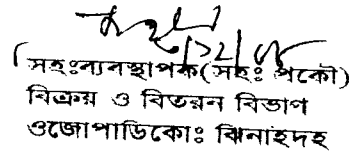 সহঃব্যবস্থাপক(সহঃ প্রকৌ)
বিক্রয় ও বিতরন বিভাগ
ওজোপাডিকোঃ ঝিনাইদহ